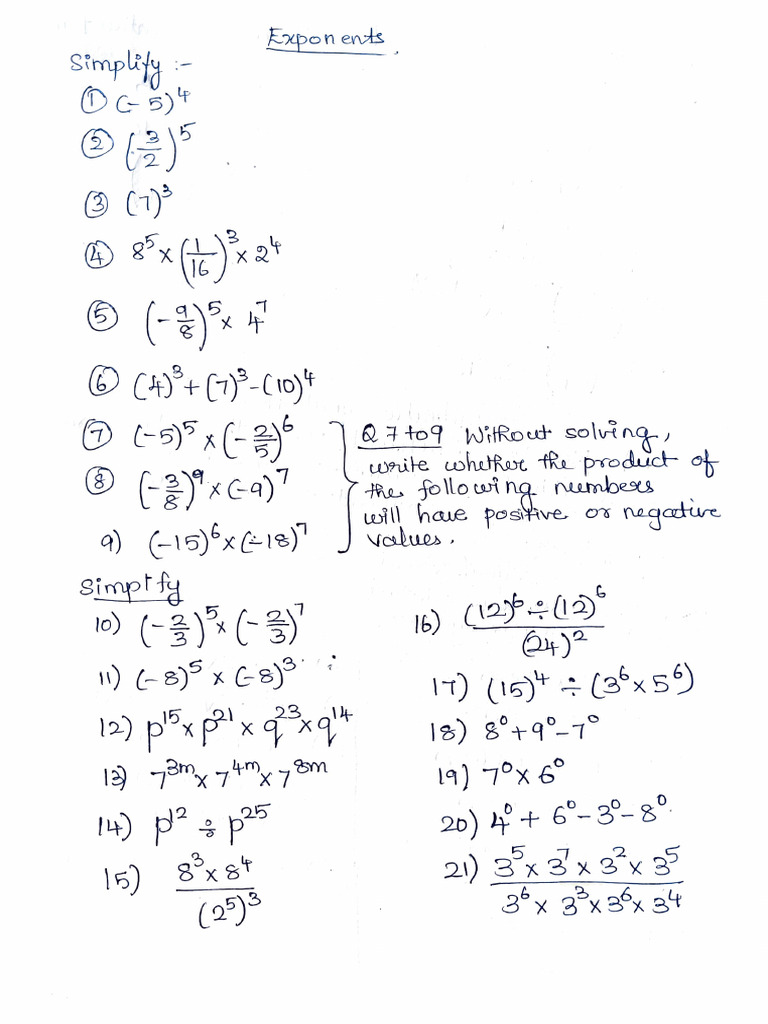 Exponents
Simplify :-
① (-5)⁴
② (3/2)⁵
③ (7)³
④ 8⁵ × (1/16)³ × 2⁴
⑤ (-9/8)⁵ × 4⁷
⑥ (4)³ + (7)³ - (10)⁴
⑦ (-5)⁵ × (-2/5)⁶
⑧ (-3/8)⁹ × (-9)⁷
9) (-15)⁶ × (-18)⁷
Q 7 to 9 Without solving,
write whether the product of
the following numbers
will have positive or negative
values.
Simplify
10) (-2/3)⁵ × (-2/3)⁷
11) (-8)⁵ × (-8)³
12) p¹⁵ × p²¹ × q²³ × q¹⁴
13) 7³ᵐ × 7⁴ᵐ × 7⁸ᵐ
14) p¹² ÷ p²⁵
15) 8³ × 8⁴ / (2⁵)³
16) (12)⁶ ÷ (12)⁶ / (24)²
17) (15)⁴ ÷ (3⁶ × 5⁶)
18) 8⁰ + 9⁰ - 7⁰
19) 7⁰ × 6⁰
20) 4⁰ + 6⁰ - 3⁰ - 8⁰
21) 3⁵ × 3⁷ × 3² × 3⁵ / 3⁶ × 3³ × 3⁶ × 3⁴